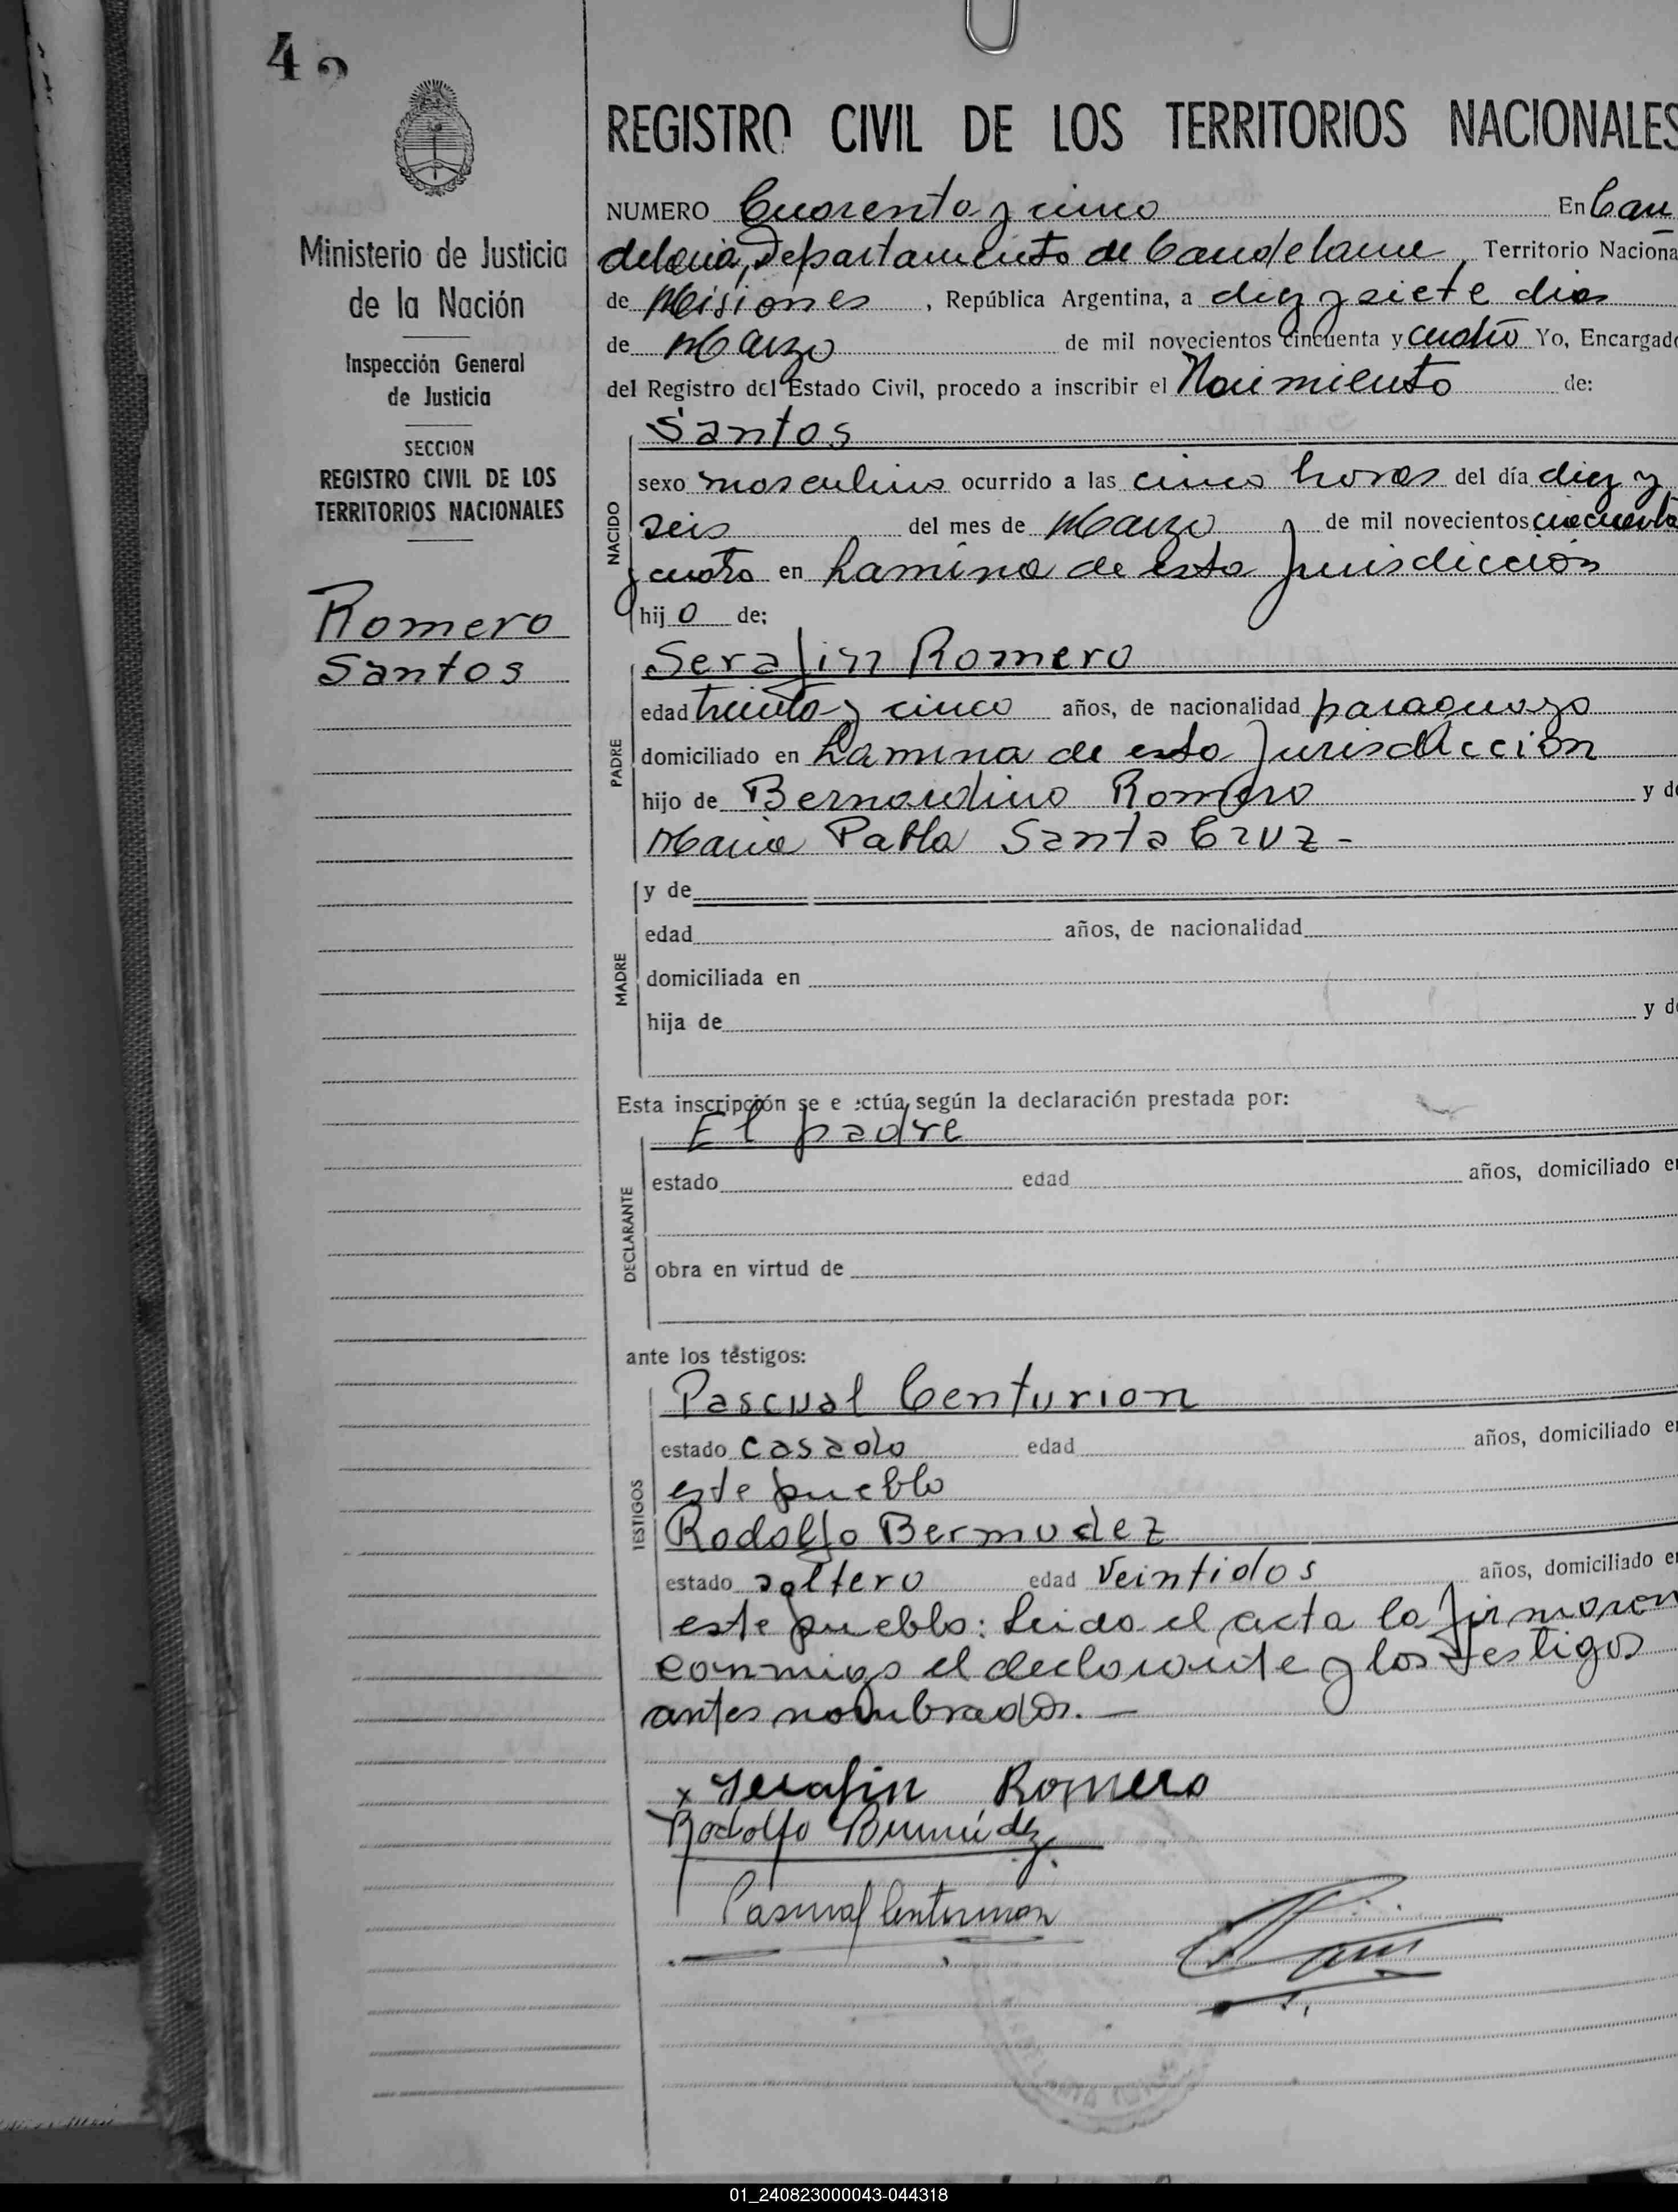 42
REGISTRO CIVIL DE LOS TERRITORIOS NACIONALES
Ministerio de Justicia
de la Nación
Inspección General
de Justicia
SECCION
REGISTRO CIVIL DE LOS
TERRITORIOS NACIONALES
Romero
Santos
NUMERO Cuarenta y cinco En Can
delaria, Departamento de Candelaria, Territorio Naciona
de Misiones, República Argentina, a diez y siete dias
de Marzo de mil novecientos cincuenta y cuatro Yo, Encargado
del Registro del Estado Civil, procedo a inscribir el Nacimiento de:
NACIDO
Santos
sexo masculino ocurrido a las cinco horas del día diez y
seis del mes de Marzo de mil novecientos cincuenta
y cuatro en Lamina de esta Jurisdicción
hijo de;
PADRE
Serafin Romero
edad treinta y cinco años, de nacionalidad paraguayo
domiciliado en Lamina de esta Jurisdicción
hijo de Bernardino Romero y de
Maria Pabla Santa Cruz -
MADRE
y de
edad años, de nacionalidad
domiciliada en
hija de y de
Esta inscripción se e ectúa según la declaración prestada por:
DECLARANTE
El padre
estado edad años, domiciliado en
obra en virtud de
ante los testigos:
TESTIGOS
Pascual Centurion
estado casado edad años, domiciliado en
este pueblo
Rodolfo Bermudez
estado soltero edad Veintidos años, domiciliado en
este pueblo: Leida el acta la firmaron
conmigo el declarante y los testigos
antes nombrados. —
x Serafin Romero
Rodolfo Bermúdez
Pascual Centurion
01_240823000043-044318